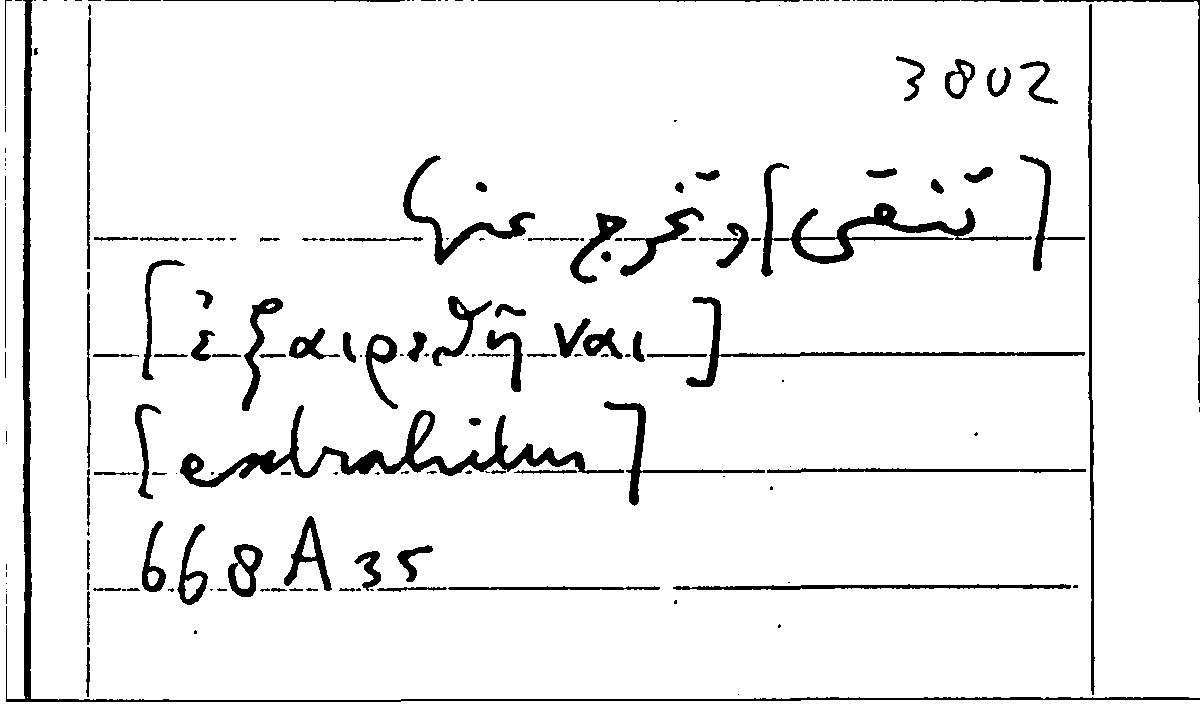 3802
[تنقى] وتخرج عنها
[ἐξαιρεθῆναι]
[extrahitur]
668 A 35